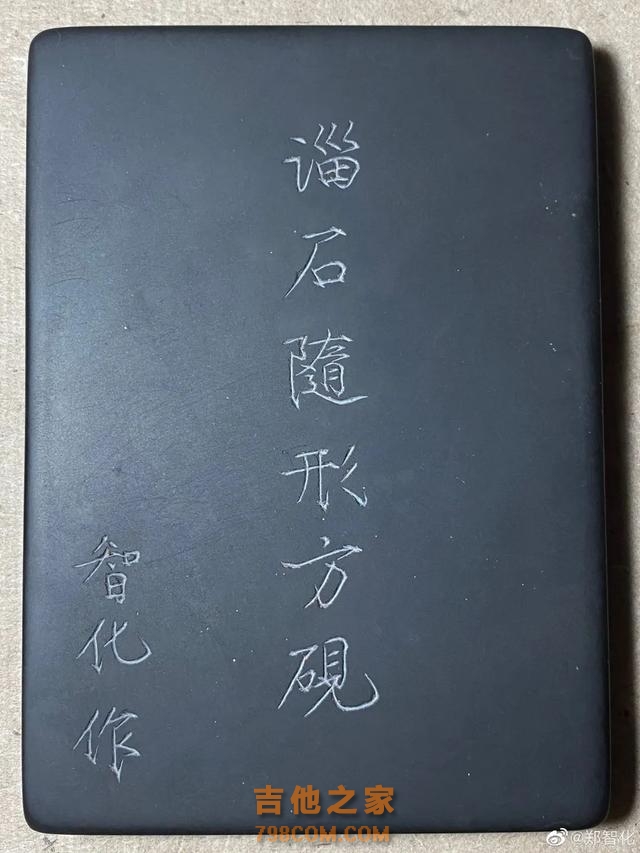 淄石隨形方硯
智化作
吉他之家
798COM.COM
@郑智化